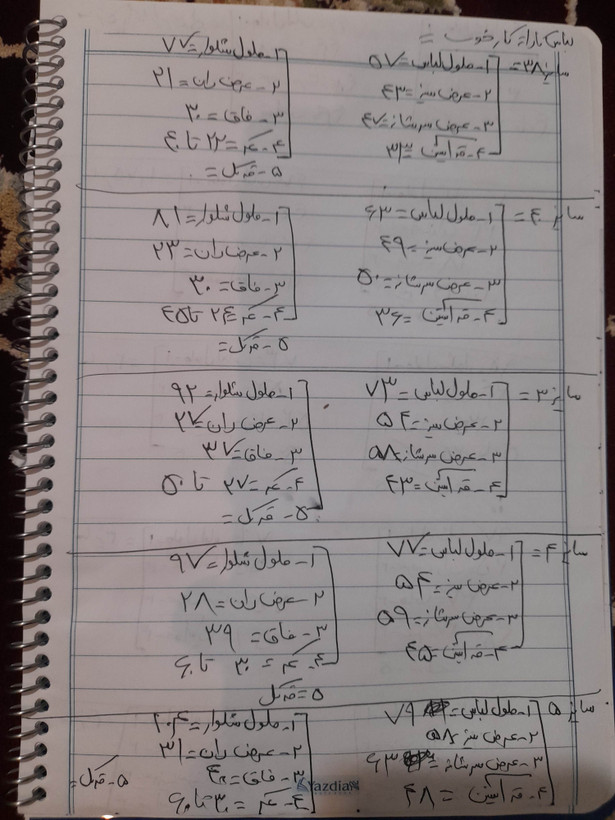 لباس یارانه کار خوب =
سایز ۳۸=
۱- طول لباس= ۵۷
۲- عرض سینه= ۴۳
۳- عرض سرشانه= ۴۷
۴- قد آستین= ۳۳
۱- طول شلوار= ۷۷
۲- عرض ران= ۲۱
۳- فاق= ۳۰
۴- کمر= ۲۳ تا ۴۰
۵- قد کل=
سایز ۴۰=
۱- طول لباس= ۶۳
۲- عرض سینه= ۴۹
۳- عرض سرشانه= ۵۰
۴- قد آستین= ۳۶
۱- طول شلوار= ۸۱
۲- عرض ران= ۲۳
۳- فاق= ۳۰
۴- کمر= ۲۴ تا ۴۵
۵- قد کل=
سایز ۳=
۱- طول لباس= ۷۳
۲- عرض سینه= ۵۴
۳- عرض سرشانه= ۵۸
۴- قد آستین= ۴۳
۱- طول شلوار= ۹۲
۲- عرض ران= ۲۷
۳- فاق= ۳۷
۴- کمر= ۲۷ تا ۵۰
۵- قد کل=
سایز ۴=
۱- طول لباس= ۷۷
۲- عرض سینه= ۵۴
۳- عرض سرشانه= ۵۹
۴- قد آستین= ۴۵
۱- طول شلوار= ۹۷
۲- عرض ران= ۲۸
۳- فاق= ۳۹
۴- کمر= ۳۰ تا ۶۰
۵= قد کل
سایز ۵
۱- طول لباس= ۷۹
۲- عرض سینه= ۵۸
۳- عرض سرشانه= ۶۳
۴- قد آستین= ۴۸
۱- طول شلوار= ۱۰۴
۲- عرض ران= ۳۱
۳- فاق= ۴۰
۴- کمر= ۳۰ تا ۶۰
۵- قد کل=
Yazdia